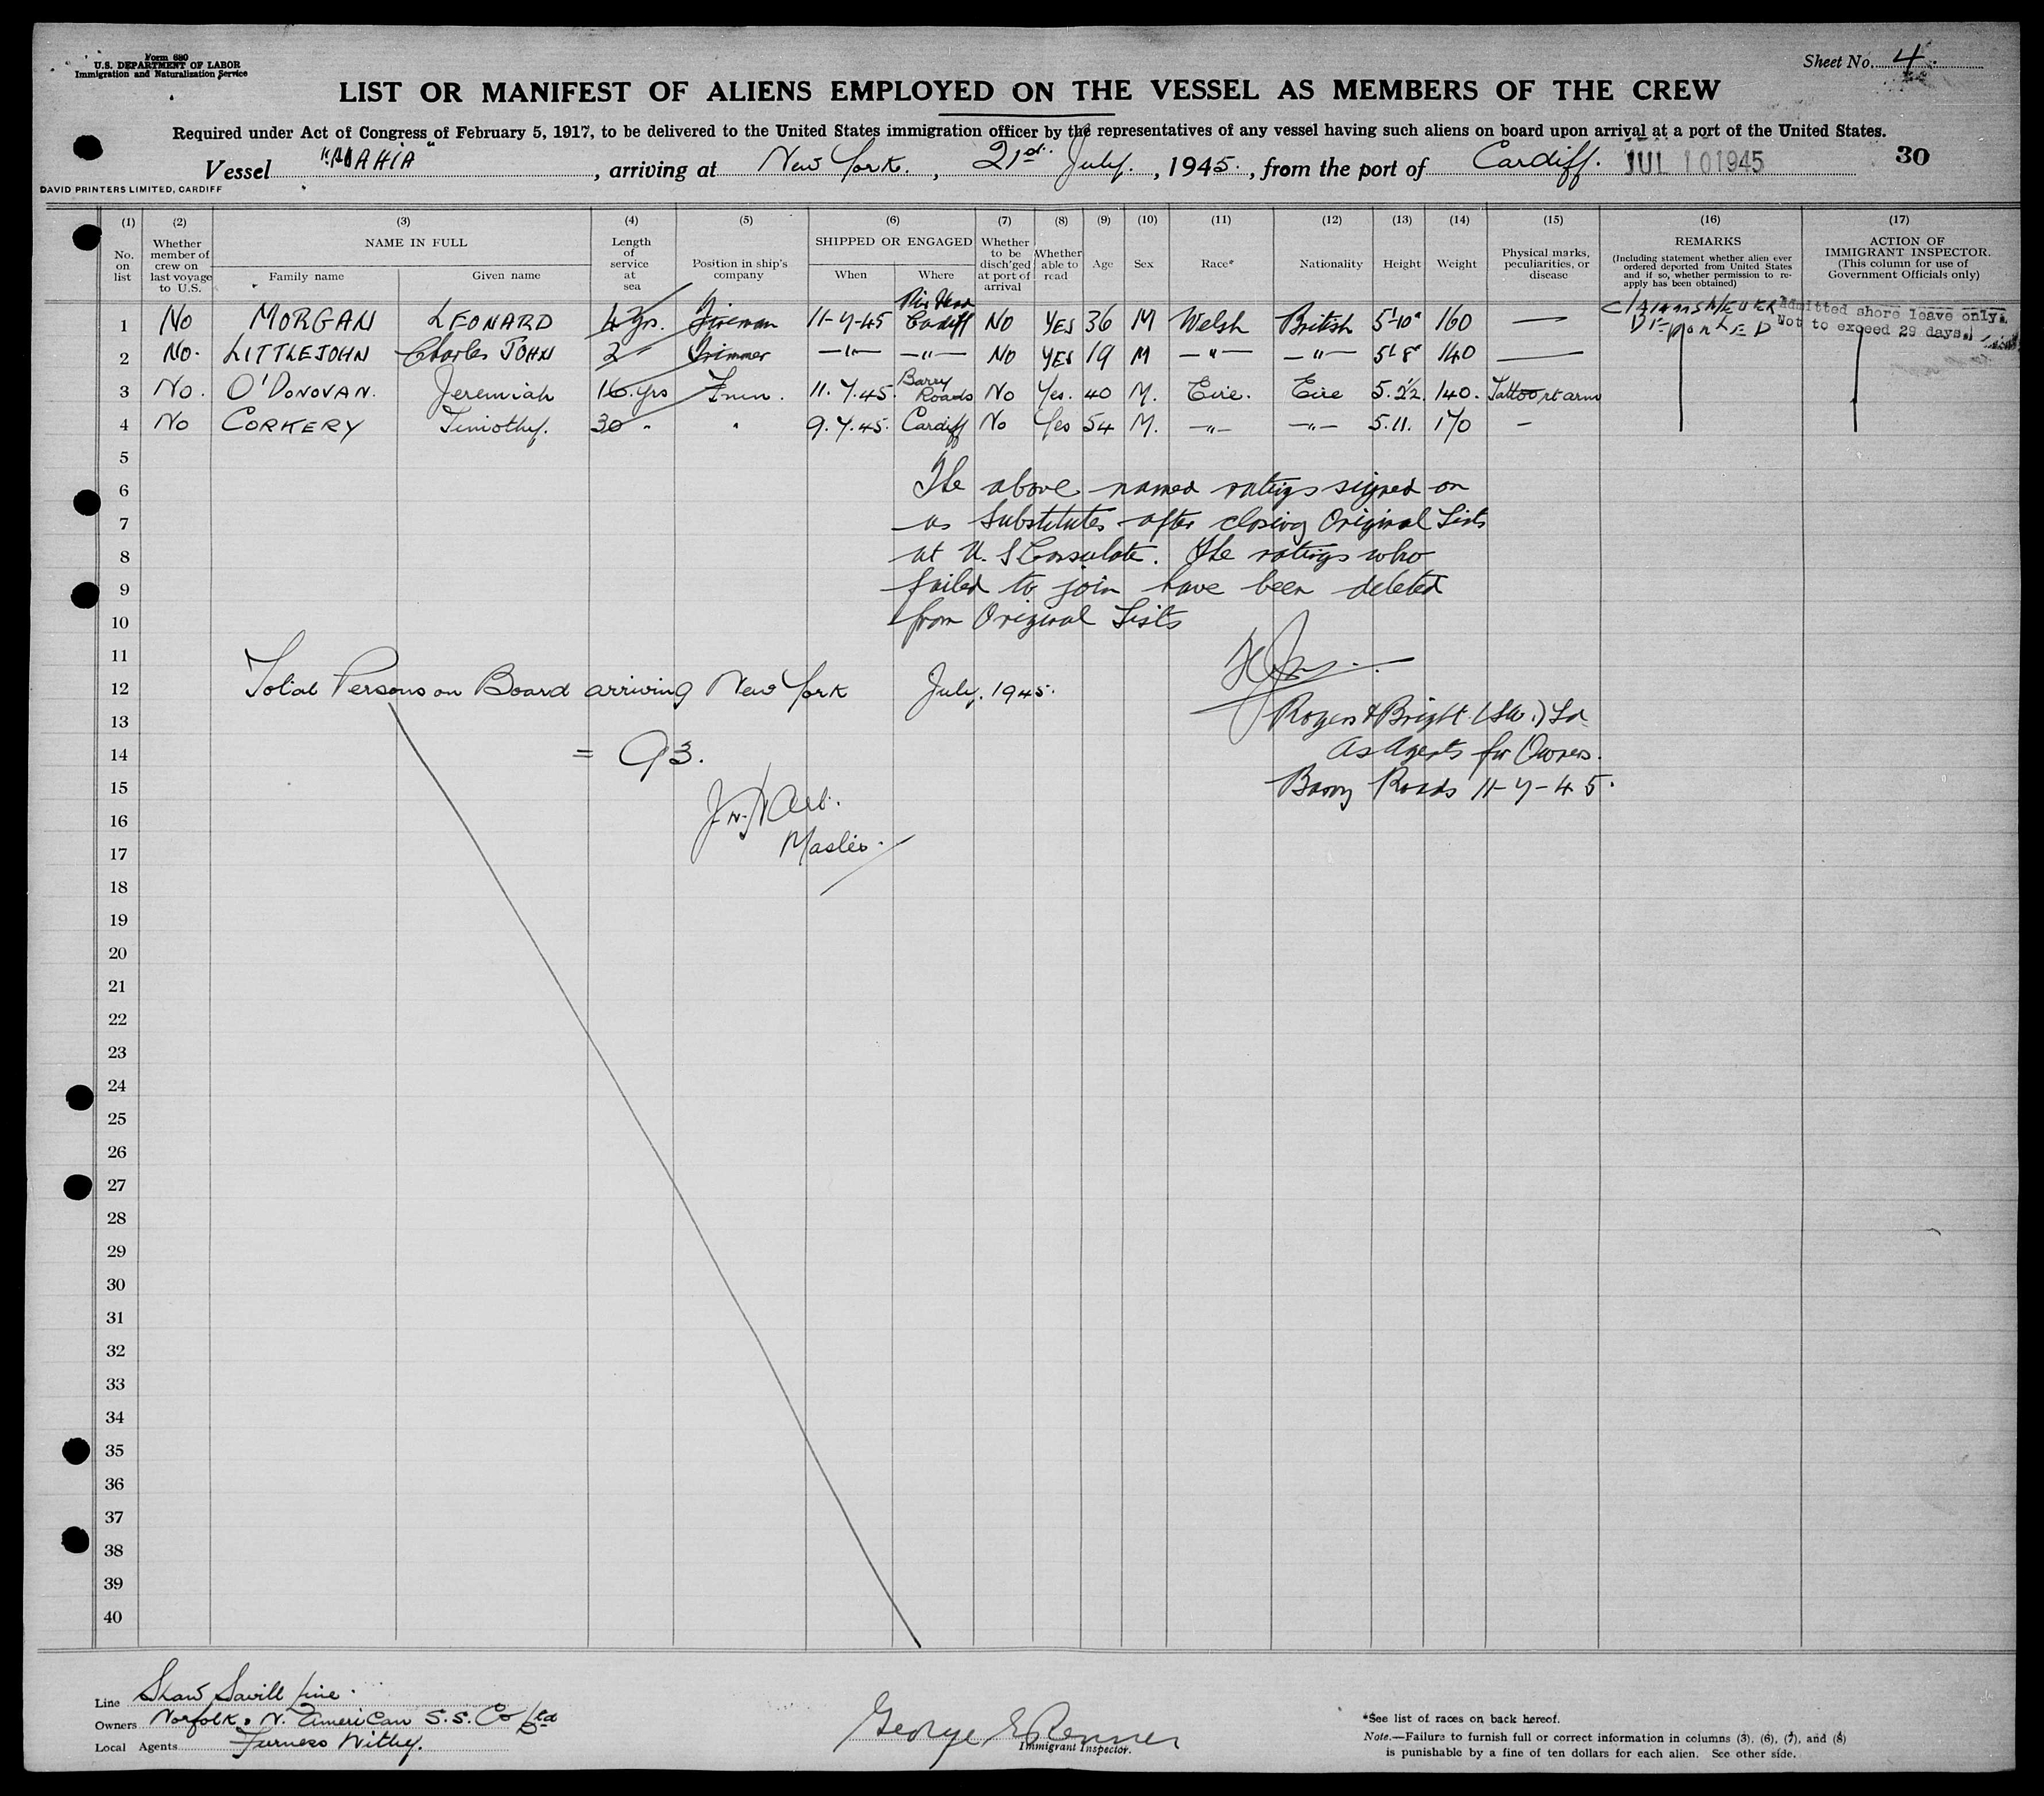 Form 680
U.S. DEPARTMENT OF LABOR
Immigration and Naturalization Service
Sheet No. 4.
LIST OR MANIFEST OF ALIENS EMPLOYED ON THE VESSEL AS MEMBERS OF THE CREW
Required under Act of Congress of February 5, 1917, to be delivered to the United States immigration officer by the representatives of any vessel having such aliens on board upon arrival at a port of the United States.
Vessel "MAHIA", arriving at New York., 21st. July., 1945., from the port of Cardiff. JUL 10 1945 30
DAVID PRINTERS LIMITED, CARDIFF
(1) (2) (3) (4) (5) (6) (7) (8) (9) (10) (11) (12) (13) (14) (15) (16) (17)
No. on list
Whether member of crew on last voyage to U.S.
NAME IN FULL
Family name Given name
Length of service at sea
Position in ship's company
SHIPPED OR ENGAGED
When Where
Whether to be disch'ged at port of arrival
Whether able to read
Age Sex Race* Nationality Height Weight
Physical marks, peculiarities, or disease
REMARKS
(Including statement whether alien ever ordered deported from United States and if so, whether permission to re-apply has been obtained)
ACTION OF IMMIGRANT INSPECTOR.
(This column for use of Government Officials only)
1 No MORGAN LEONARD 4 yrs. Fireman 11-7-45 Cardiff No YES 36 M Welsh British 5'-10" 160 — Claims NEVER DEPORTED Admitted shore leave only. Not to exceed 29 days.
2 No. LITTLEJOHN Charles JOHN 2 " Trimmer —"— —"— No YES 19 M —"— —"— 5'8" 140 —
3 No. O'DONOVAN. Jeremiah 16 yrs Fmn. 11.7.45. Barry Roads No Yes. 40 M. Eire. Eire 5.2½ 140. Tattoo rt arm
4 No CORKERY Timothy. 30 " " 9.7.45. Cardiff No Yes 54 M. —"— —"— 5.11. 170 —
5
6 The above named ratings signed on
7 as Substitutes after closing Original Lists
8 at U.S Consulate. The ratings who
9 failed to join have been deleted
10 from Original Lists
11
12 Total Persons on Board arriving New York July, 1945.
13 Rogers & Bright (SW.) Ld
14 = 93. As Agents for Owners.
15 Barry Roads 11-7-45.
16
17 Master.
18
19
20
21
22
23
24
25
26
27
28
29
30
31
32
33
34
35
36
37
38
39
40
Line Shaw Savill Line.
Owners Norfolk & N. American S.S. Co Ltd
Local Agents Furness Withy.
George E Renner
Immigrant Inspector.
*See list of races on back hereof.
Note.—Failure to furnish full or correct information in columns (3), (6), (7), and (8)
is punishable by a fine of ten dollars for each alien. See other side.